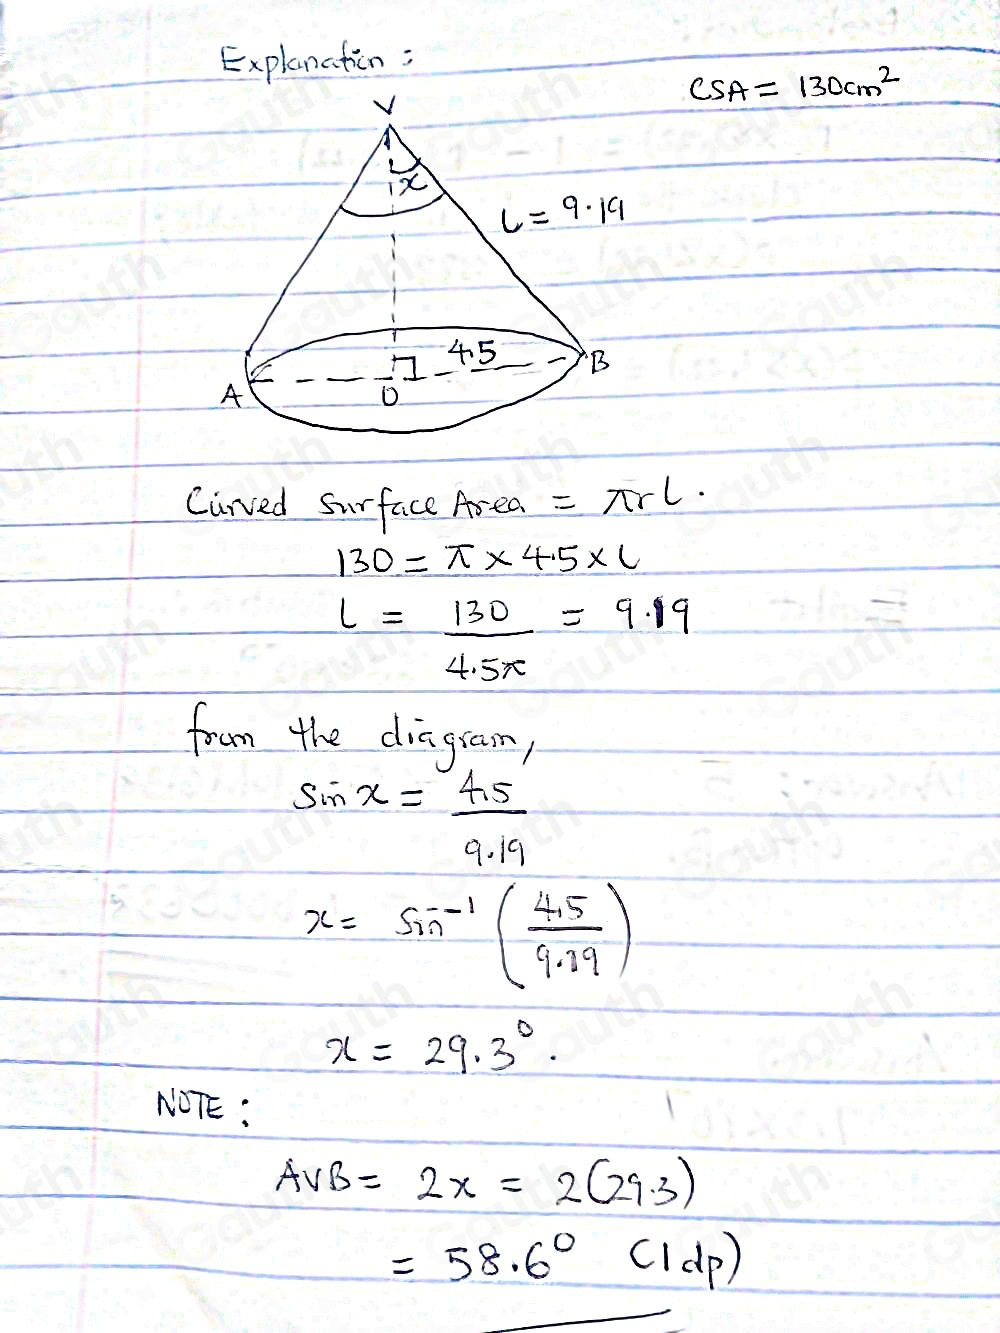 Explanation :
CSA = 130cm²
V
x
l = 9.19
4.5
A
O
B
Curved Surface Area = πrl.
130 = π × 4.5 × l
l = 130/4.5π = 9.19
from the diagram,
sin x = 4.5/9.19
x = sin⁻¹ (4.5/9.19)
x = 29.3°.
NOTE :
AVB = 2x = 2(29.3)
= 58.6° (1dp)